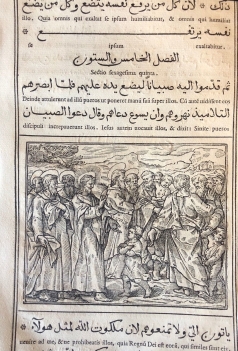 لان كل من يرفع نفسه يتضع وكل من يضع
illo. Quia omnis qui exaltat se ipsum humiliabitur, & omnis qui humiliat
نفسه يرتفع
se ipsum exaltabitur.
الفصل الخامس والستون
Sectio sexagesima quinta.
ثم قدموا اليه صبيانا ليضع يده عليهم فلما ابصرهم
Deinde attulerunt ad illū pueros ut poneret manū suā super illos. Cū autē vidissent eos
التلاميذ نهروهم وان يسوع دعاهم وقال دعوا الصبيان
discipuli increpauerunt illos. Iesus autem vocauit illos, & dixit: Sinite pueros
ياتون الي ولا تمنعوهم لان ملكوت الله لمثل هولاء
venire ad me, & ne prohibeatis illos, quia Regnū Dei est eorū, qui similes sunt eis.